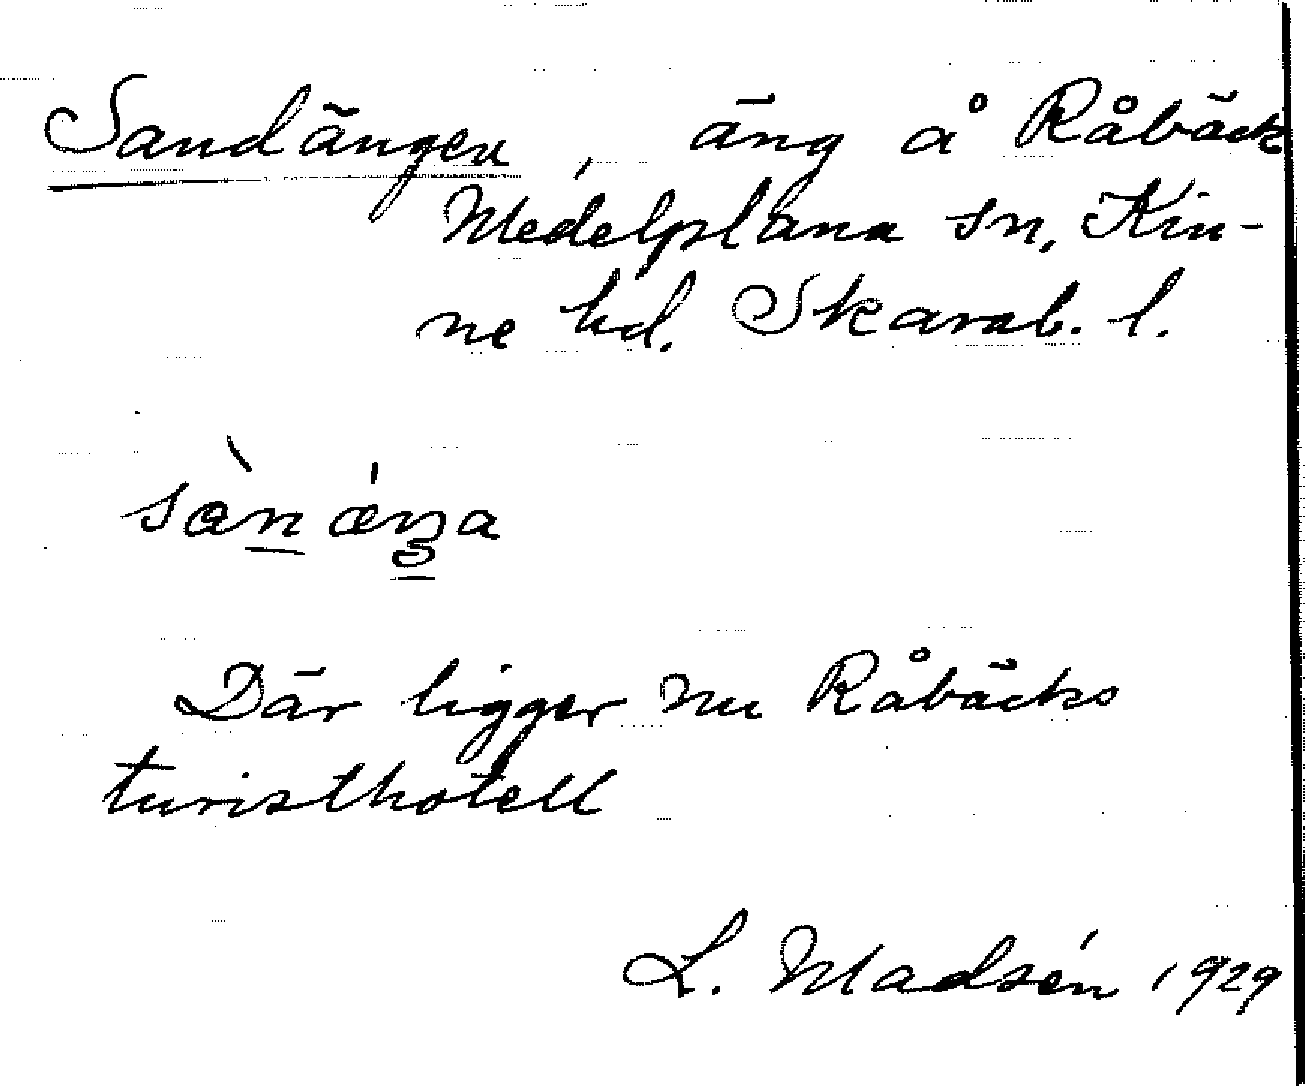 Sandängen, äng å Råbäck
Medelplana sn, Kin-
ne hd. Skarab. l.
sàn ǽŋa
Där ligger nu Råbäcks
turisthotell
L. Madsén 1929